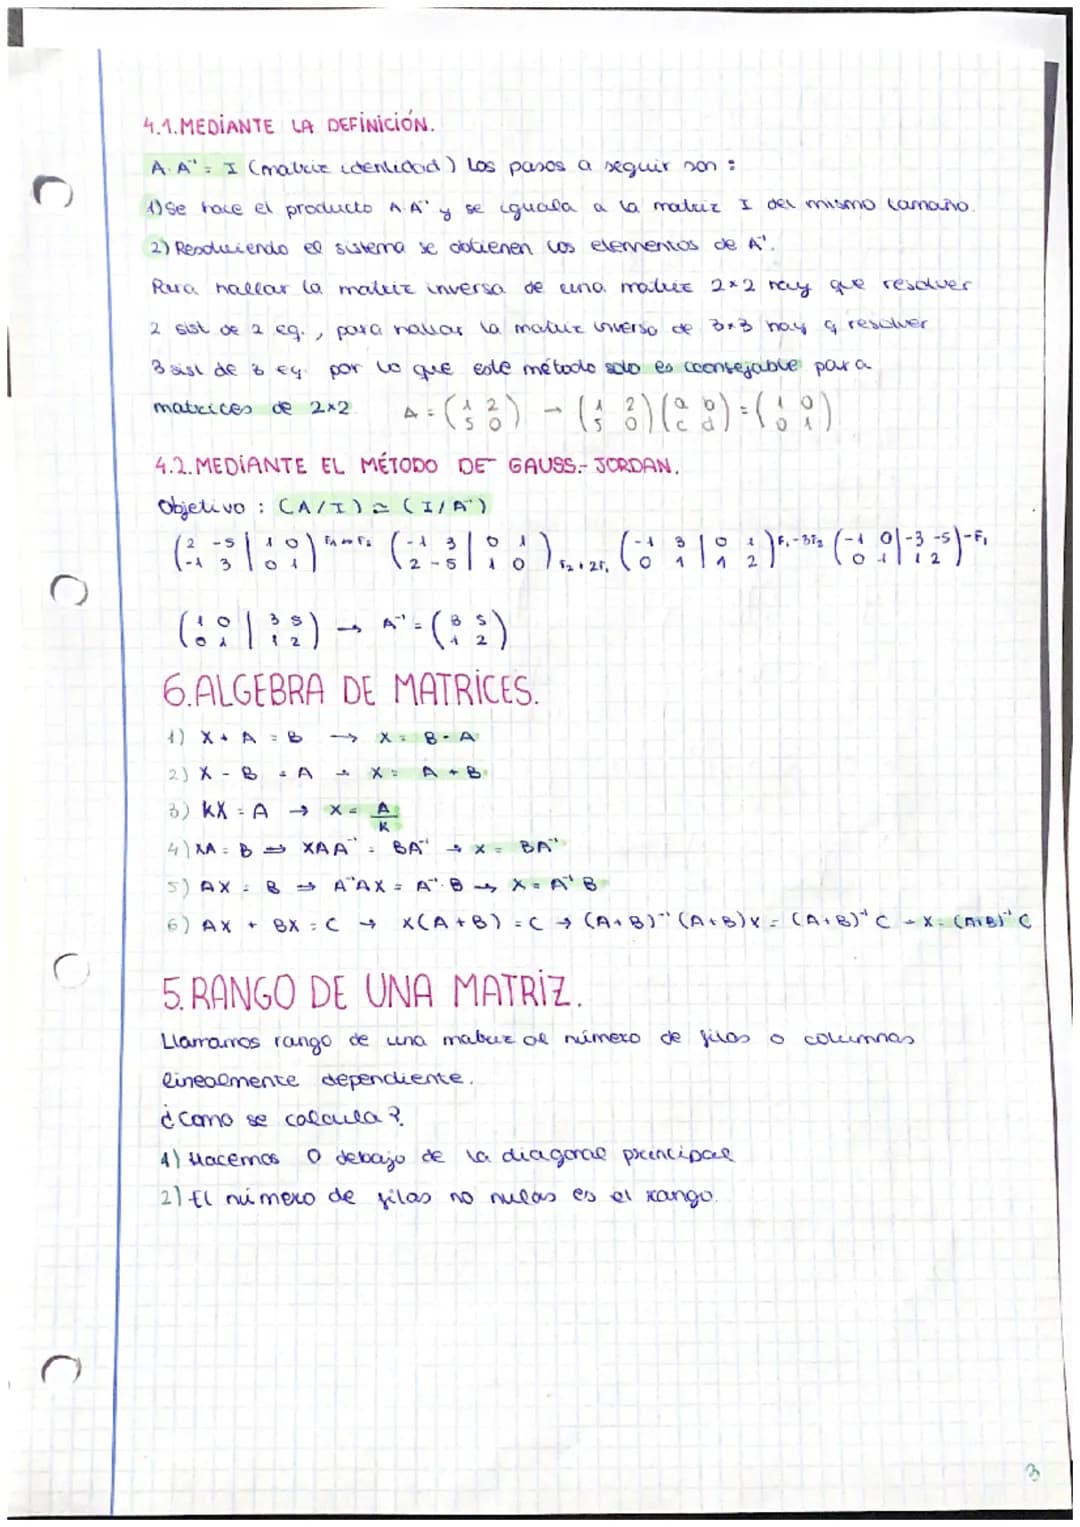 4.1.MEDIANTE LA DEFINICIÓN.
A·A⁻¹ = I (matriz identidad) Los pasos a seguir son:
1)Se hace el producto A·A⁻¹ y se iguala a la matriz I del mismo tamaño.
2) Resolviendo el sistema se obtienen los elementos de A⁻¹.
Para hallar la matriz inversa de una matriz 2×2 hay que resolver
2 sist de 2 eq., para hallar la matriz inversa de 3×3 hay q resolver
3 sist de 3 eq. por lo que este método solo es aconsejable para
matrices de 2×2. A = (1 2; 5 0) → (1 2; 5 0)(a b; c d) = (1 0; 0 1)
4.2.MEDIANTE EL MÉTODO DE GAUSS-JORDAN.
Objetivo : (A/I) ≃ (I/A⁻¹)
(2 -5 | 1 0; -1 3 | 0 1) F₁↔F₂ (-1 3 | 0 1; 2 -5 | 1 0) F₂+2F₁ (-1 3 | 0 1; 0 1 | 1 2) F₁-3F₂ (-1 0 | -3 -5; 0 1 | 1 2) -F₁
(1 0 | 3 5; 0 1 | 1 2) → A⁻¹ = (3 5; 1 2)
6.ALGEBRA DE MATRICES.
1) X + A = B → X = B - A
2) X - B = A → X = A + B
3) KX = A → X = A/K
4) XA = B → XAA⁻¹ = BA⁻¹ → X = BA⁻¹
5) AX = B → A⁻¹AX = A⁻¹·B → X = A⁻¹B
6) AX + BX = C → X(A+B) = C → (A+B)⁻¹(A+B)X = (A+B)⁻¹C → X = (A+B)⁻¹C
5.RANGO DE UNA MATRIZ.
Llamamos rango de una matriz al número de filas o columnas
linealmente dependiente.
¿Como se calcula?
1) Hacemos 0 debajo de la diagonal principal
2) El número de filas no nulas es el rango.
3